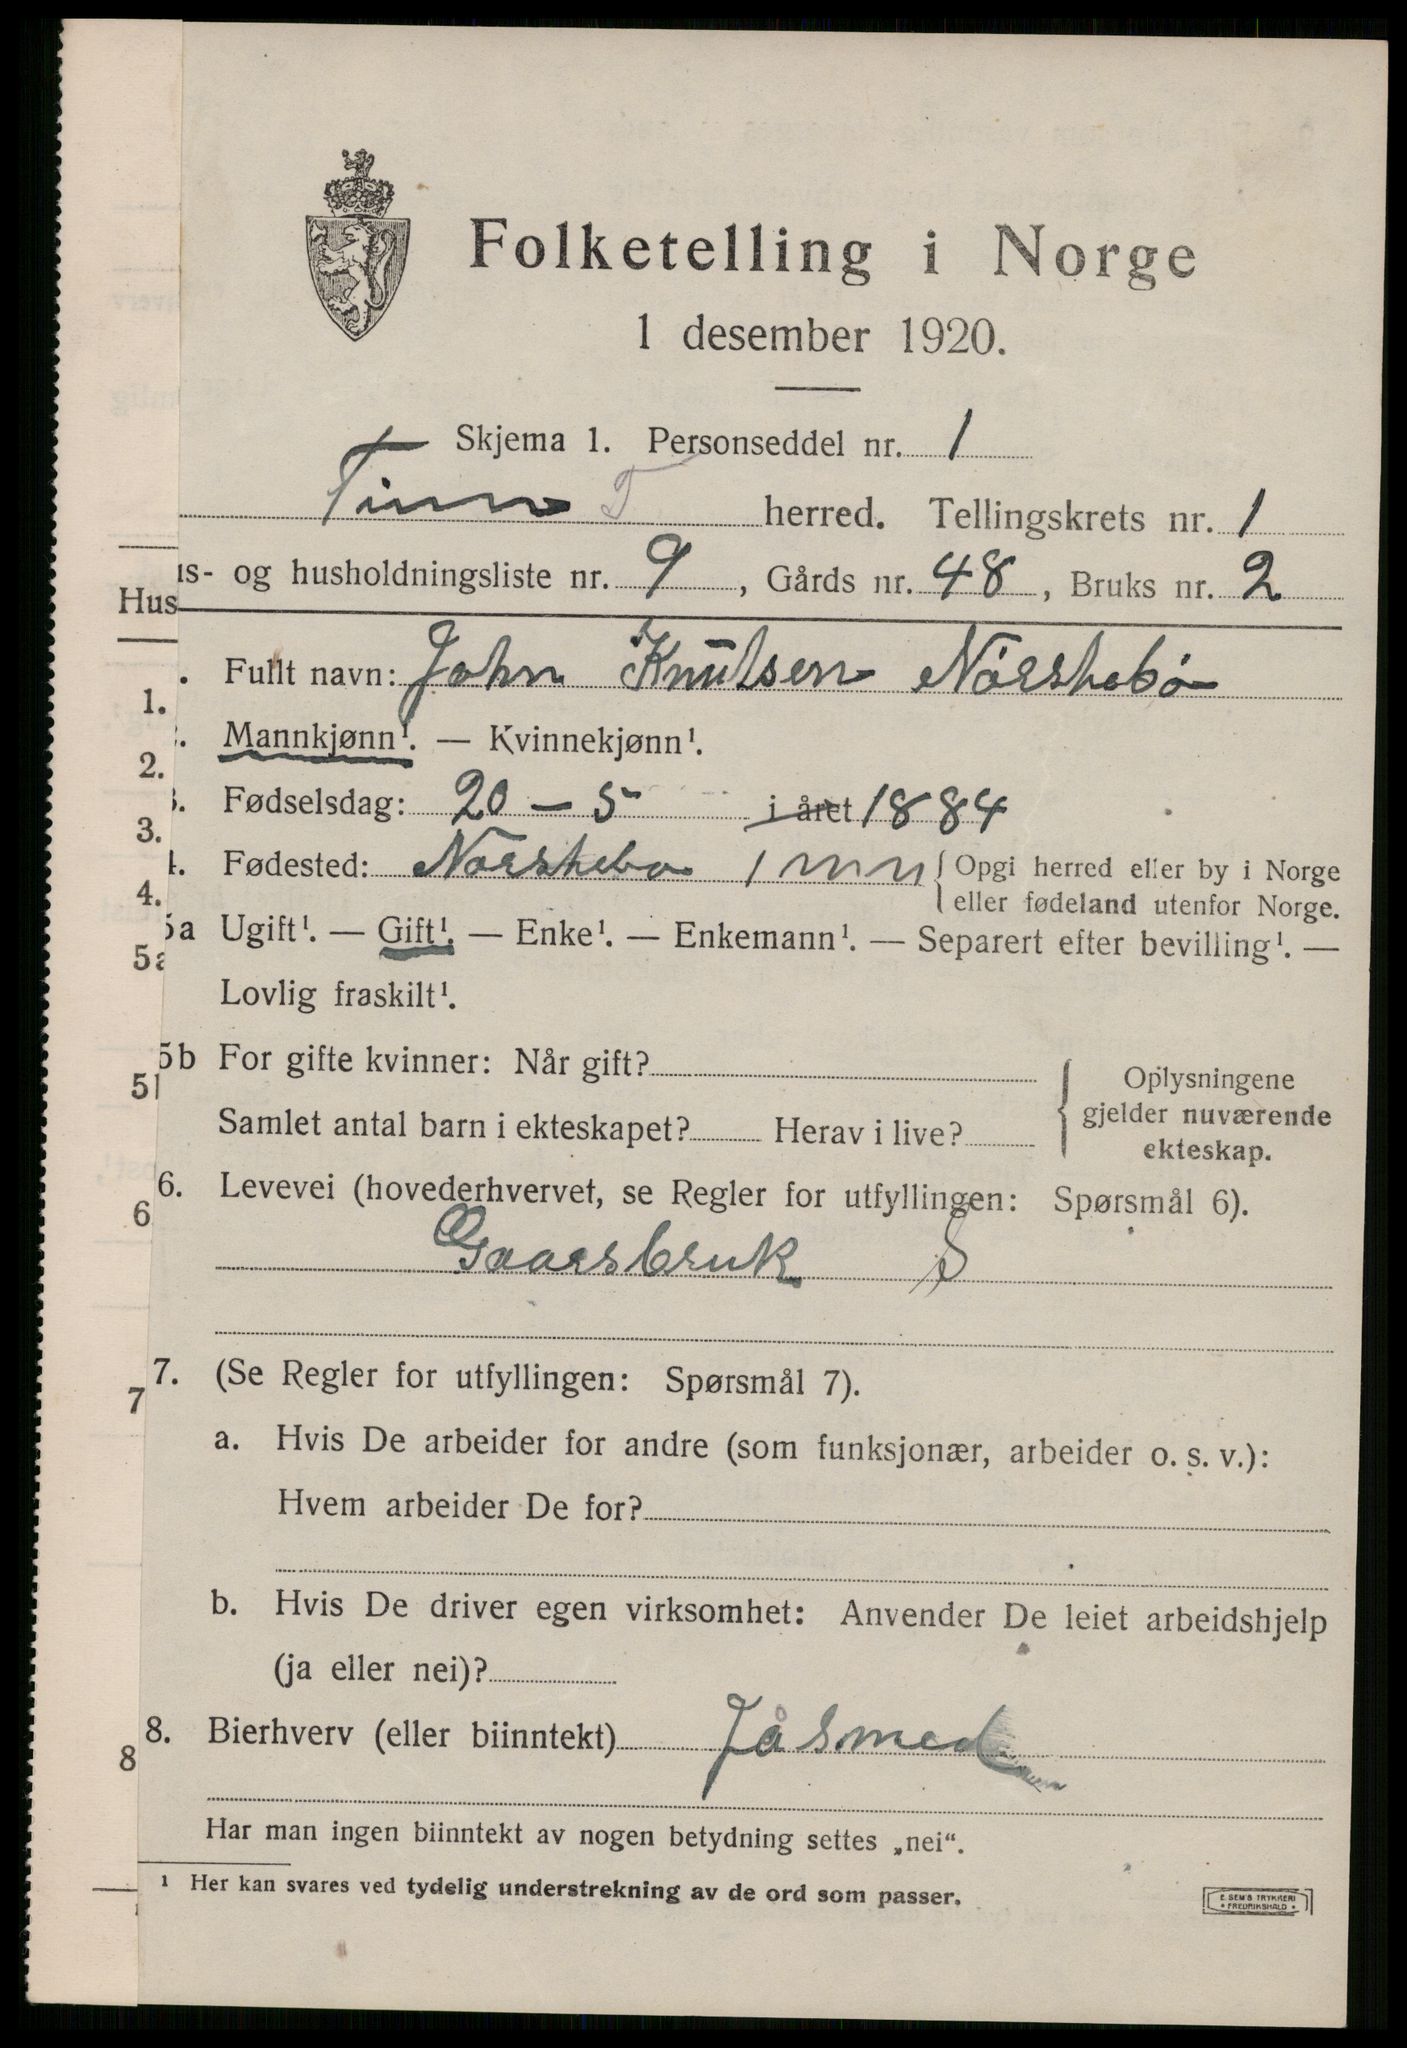 Folketelling i Norge
1 desember 1920.
Skjema 1. Personseddel nr. 1
Tinn T herred. Tellingskrets nr. 1
us- og husholdningsliste nr. 9, Gårds nr. 48, Bruks nr. 2
Hus
. Fullt navn: John Knutsen Nórshebó
1.
2. Mannkjønn¹. — Kvinnekjønn¹.
2.
3. Fødselsdag: 20 – 5 i året 1884
3.
4. Fødested: Norshebo Tinn { Opgi herred eller by i Norge
4. eller fødeland utenfor Norge.
5a Ugift¹. — Gift¹. — Enke¹. — Enkemann¹. — Separert efter bevilling¹. —
5a
Lovlig fraskilt¹.
5b For gifte kvinner: Når gift? { Oplysningene
5b gjelder nuværende
Samlet antal barn i ekteskapet? Herav i live? ekteskap.
6. Levevei (hovederhvervet, se Regler for utfyllingen: Spørsmål 6).
6
Gaarsbruk S
7. (Se Regler for utfyllingen: Spørsmål 7).
7
a. Hvis De arbeider for andre (som funksjonær, arbeider o. s. v.):
Hvem arbeider De for?
b. Hvis De driver egen virksomhet: Anvender De leiet arbeidshjelp
(ja eller nei)?
8. Bierhverv (eller biinntekt)
8
Har man ingen biinntekt av nogen betydning settes „nei“.
¹ Her kan svares ved tydelig understrekning av de ord som passer.
E. SEM'S TRYKKERI
* FREDRIKSHALD *